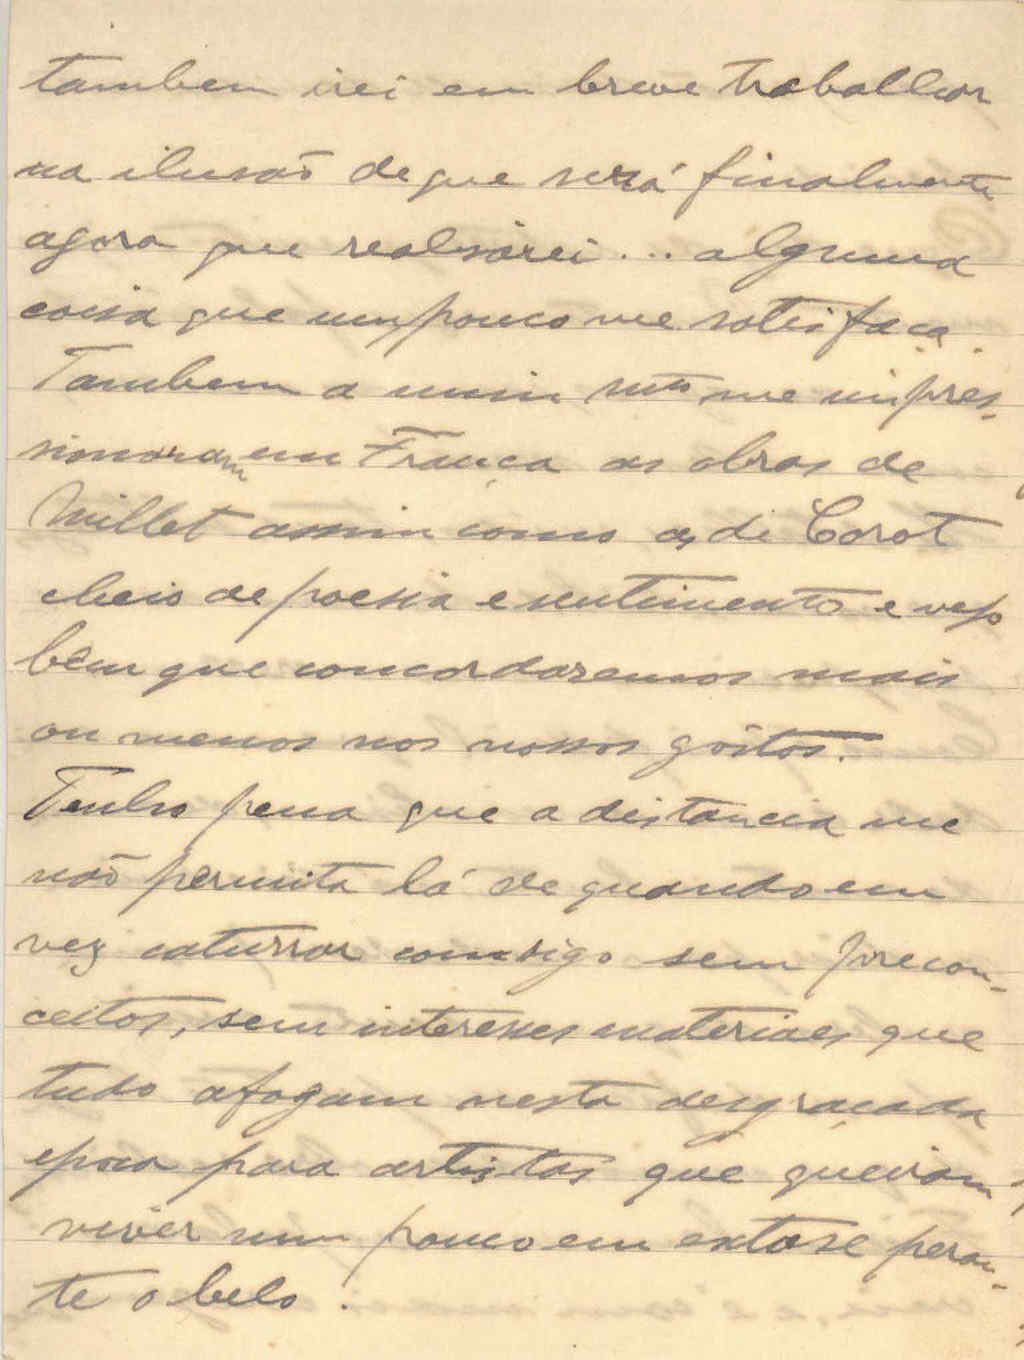 tambem irei em breve trabalhar
na ilusão de que será finalmente
agora que realisarei... alguma
coisa que um pouco me satisfaça.
Tambem a mim mto me impres-
sionaram em França as obras de
Millet assim como as de Corot
cheio de poesia e sentimento e vejo
bem que concordaremos mais
ou menos nos nossos gôstos.
Tenho pena que a distancia me
não permita lá de quando em
vez caturrar comsigo sem precon-
ceitos, sem interesses materiaes que
tudo afogam nesta desgraçada
epoca para artistas que queiram
viver um pouco em extase peran-
te o belo.